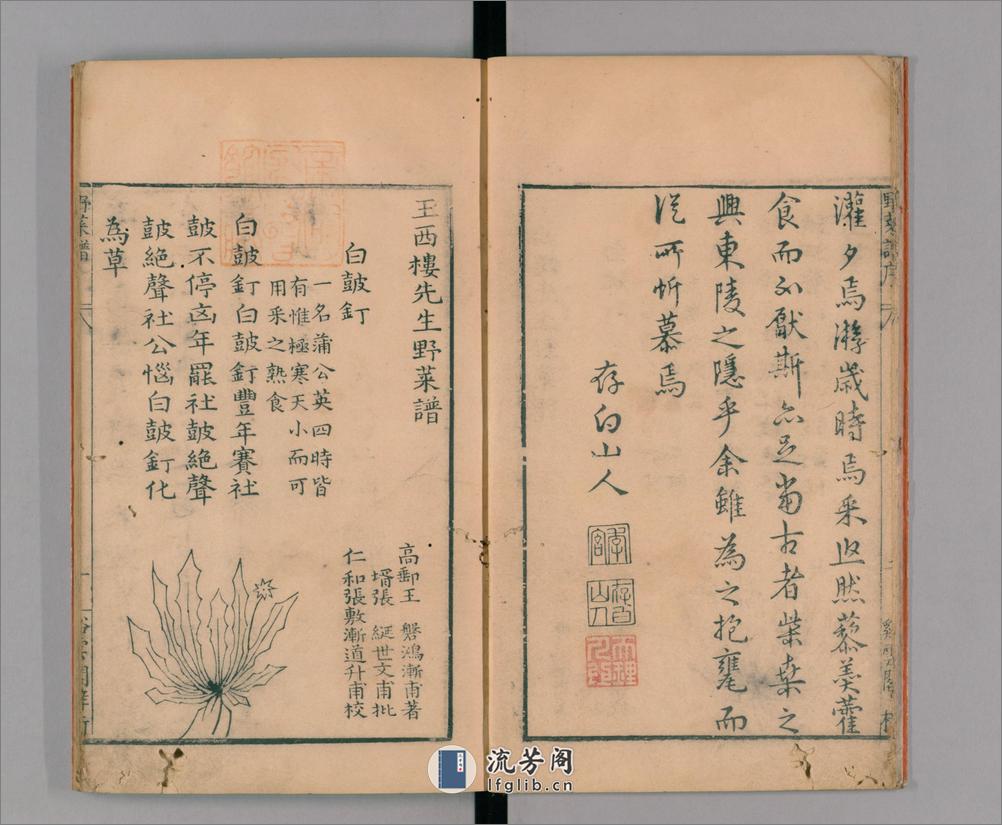 灌夕焉游歲時焉采遐然藜羹藿
食而不厭斯亦足當古者柴桑之
興東陵之隱乎余雖為之抱甕而
從所忻慕焉
存白山人
王西樓先生野菜譜
高郵王 磐鴻漸甫著
壻張 綖世文甫批
仁和張敷漸道升甫校
白皷釘
一名蒲公英四時皆
有惟極寒天小而可
用采之熟食
白皷釘白皷釘豐年賽社
皷不停凶年罷社皷絕聲
皷絕聲社公惱白皷釘化
為草
流芳阁
lfglib.cn